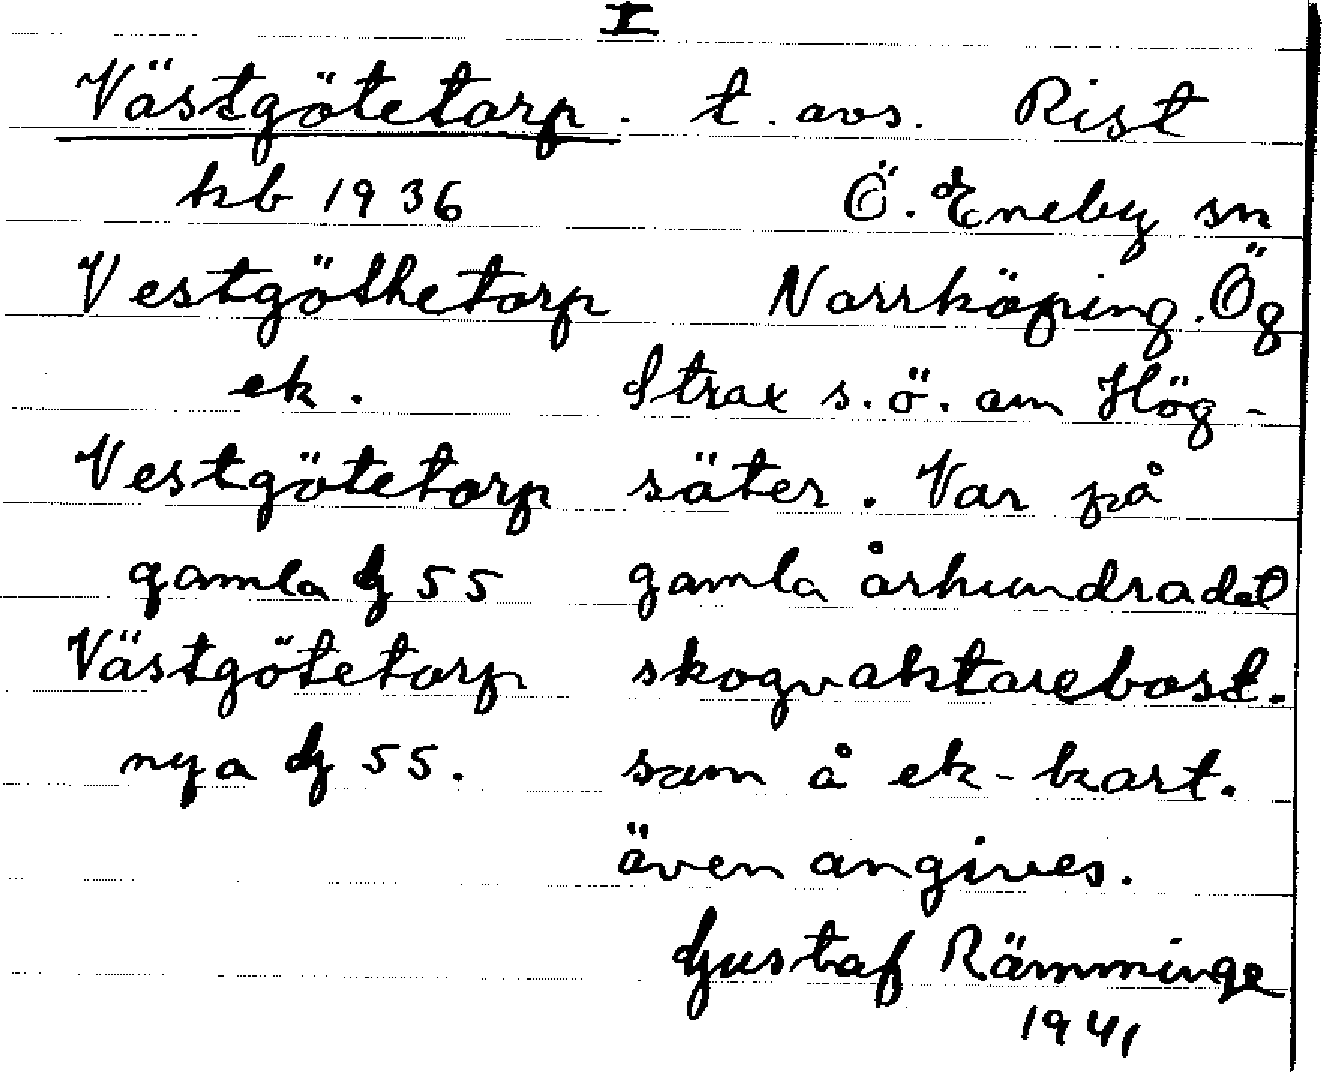 I
Västgötetorp. t. avs. Rist
kb 1936 Ö. Eneby sn
Vestgöthetorp Norrköping. Ög
ek. Strax s.ö. om Hög-
Vestgötetorp säter. Var på
gamla G 55 gamla århundradet
Västgötetorp skogvaktarebost.
nya G 55. som å ek-kart.
även angives.
Gustaf Rämminge
1941